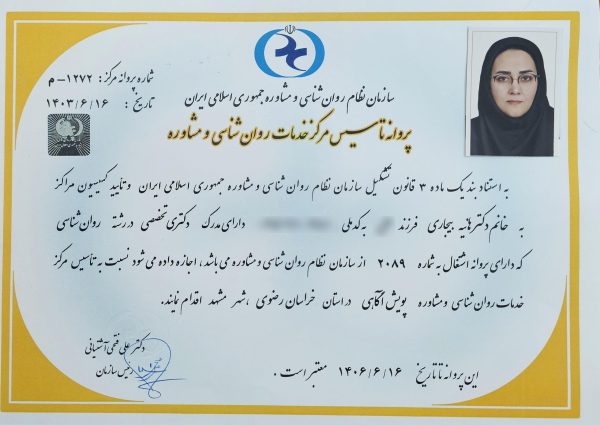 شماره پروانه مرکز: ۱۲۷۲-م
تاریخ: ۱۴۰۳/۶/۱۶
سازمان نظام روان شناسی و مشاوره جمهوری اسلامی ایران
پروانه تاسیس مرکز خدمات روان شناسی و مشاوره
به استناد بند یک ماده ۳ قانون تشکیل سازمان نظام روان شناسی و مشاوره جمهوری اسلامی ایران و تأیید کمیسیون مراکز
به خانم دکتر هانیه بیجاری فرزند به کدملی دارای مدرک دکتری تخصصی در رشته روان شناسی
که دارای پروانه اشتغال به شماره ۲۰۸۹ از سازمان نظام روان شناسی و مشاوره می باشد، اجازه داده می شود نسبت به تأسیس مرکز
خدمات روان شناسی و مشاوره پویش آگاهی در استان خراسان رضوی، شهر مشهد اقدام نمایند.
این پروانه تا تاریخ ۱۴۰۶/۶/۱۶ معتبر است.
دکتر علی فتحی آشتیانی
رئیس سازمان